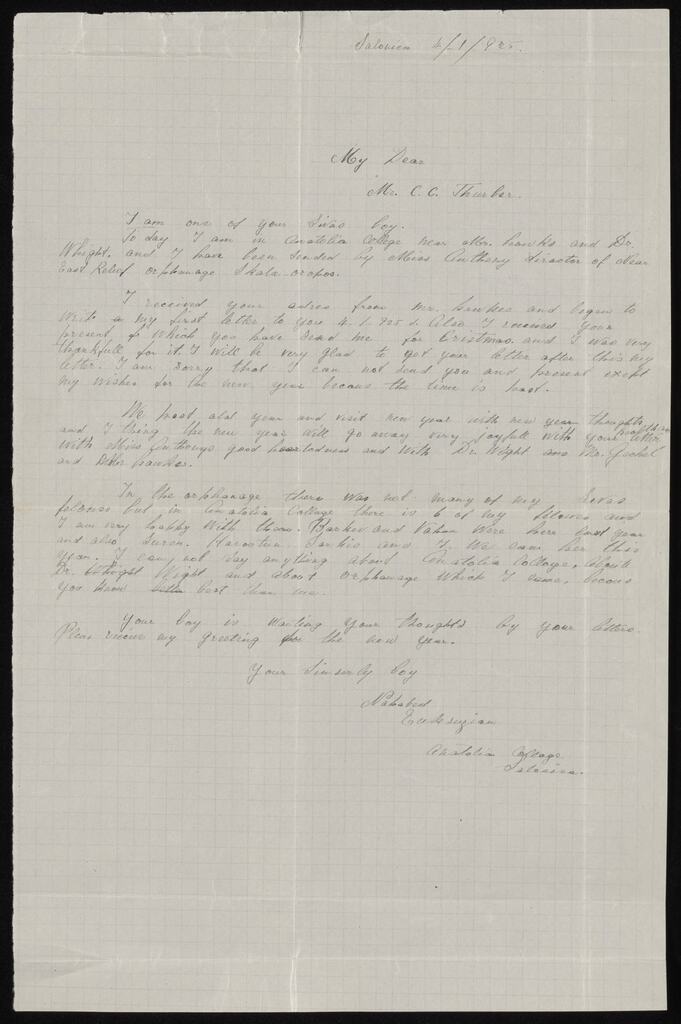 Salonica 4/1/925.
My Dear
Mr. C. C. Thurber.
I am one of your Sivas boy.
To day I am in Anatolia College near Mr. hawks and Dr.
Whight. and I have been sended by Miss Anthony director of Near
East Relief orphanage Skala-oropos.
I received your adres from Mr. hawkes and begun to
Writ a my first letter to you 4. 1. 925. Also I received your
present, which you have send me for Cristmas and I was very
thankfull for it. I will be very glad to get your letter after this my
letter. I am sorry that I can not send you and present exept
my wishes for the new year becaus the time is past.
We past old year and visit new year with new year thoughts
and I thing the new year will go away very joyfull with your
With Miss Anthonys good heartedness and with Dr. Wight and Mr.
and Mr hawkes.
In the orphanage there was not many of my Sivas
felowes but in Anatolia College there is 6 of my felowes and
I am very happy with them. and Vahan were here last year
and also Suren. Haroutun Sarkis and I. We came her this
year. I can not say anything about Anatolia College, about
Dr. Wight and about orphanage which I came, becous
you know best than me.
Your boy is waiting your thoughts by your letters.
Pleas receive my greeting for the new year.
Your Sinserly boy
Nahabed
Anatolia College
Salonica.